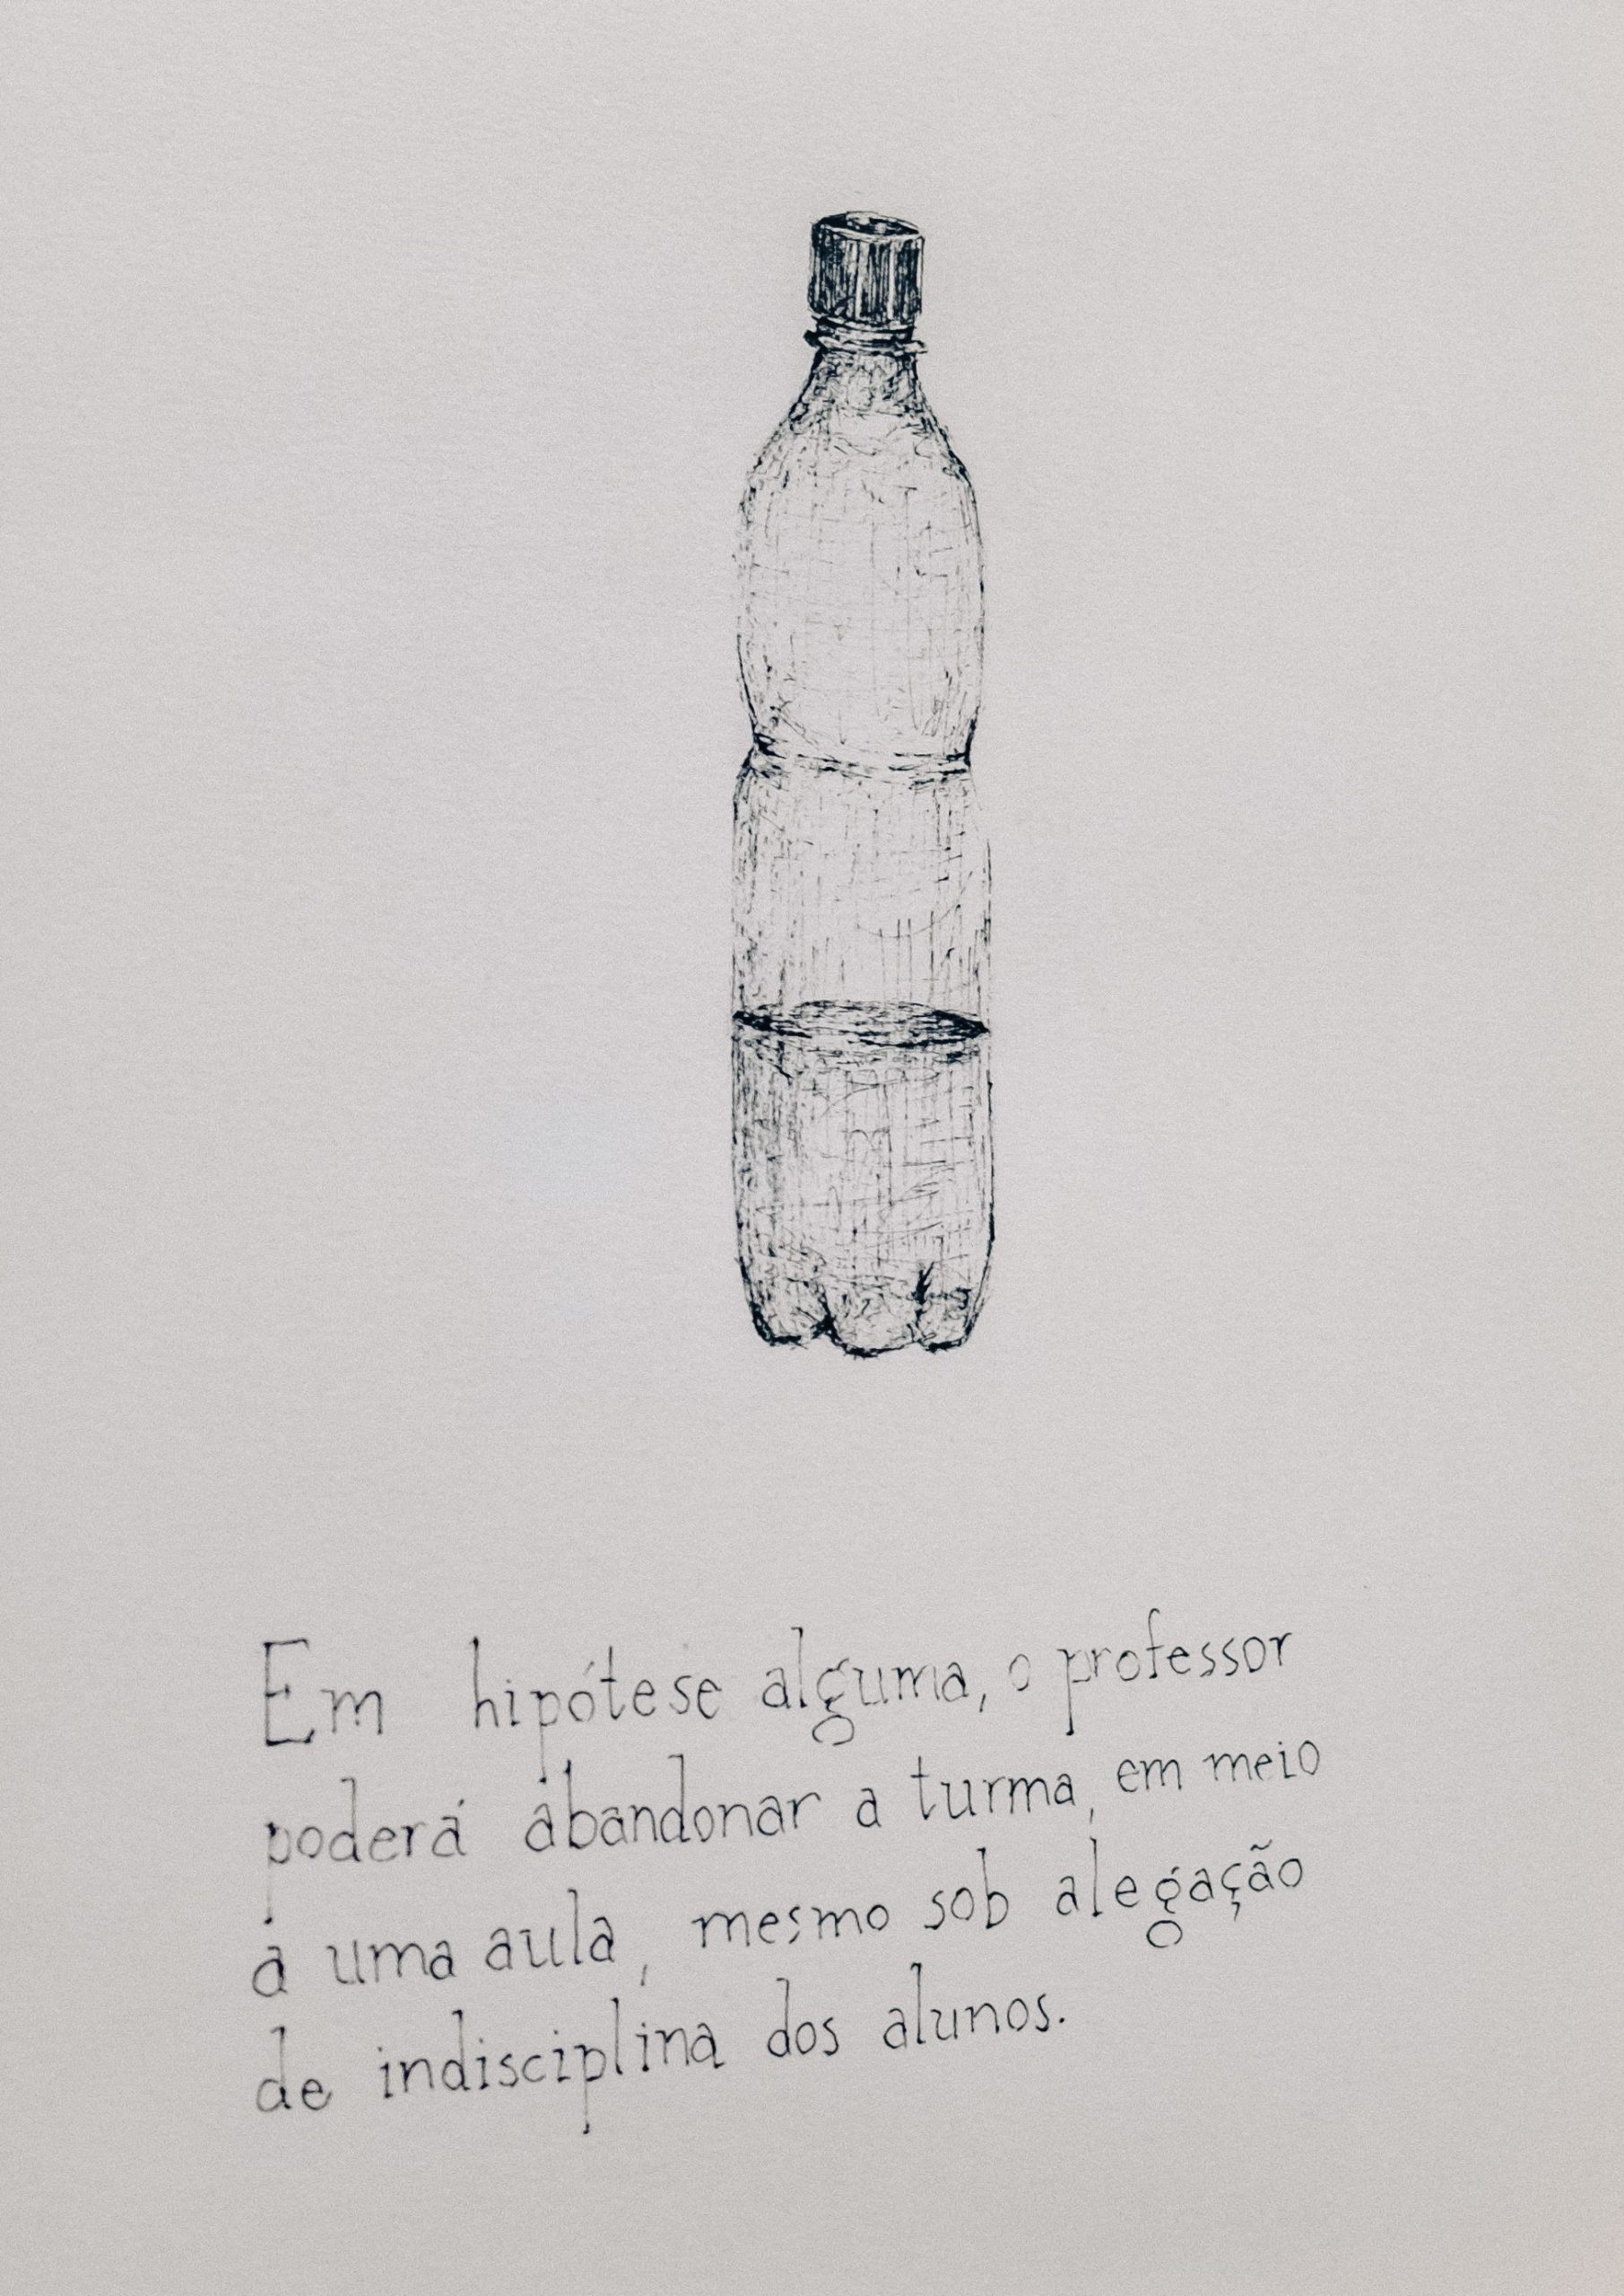 Em hipótese alguma, o professor
poderá abandonar a turma, em meio
a uma aula, mesmo sob alegação
de indisciplina dos alunos.